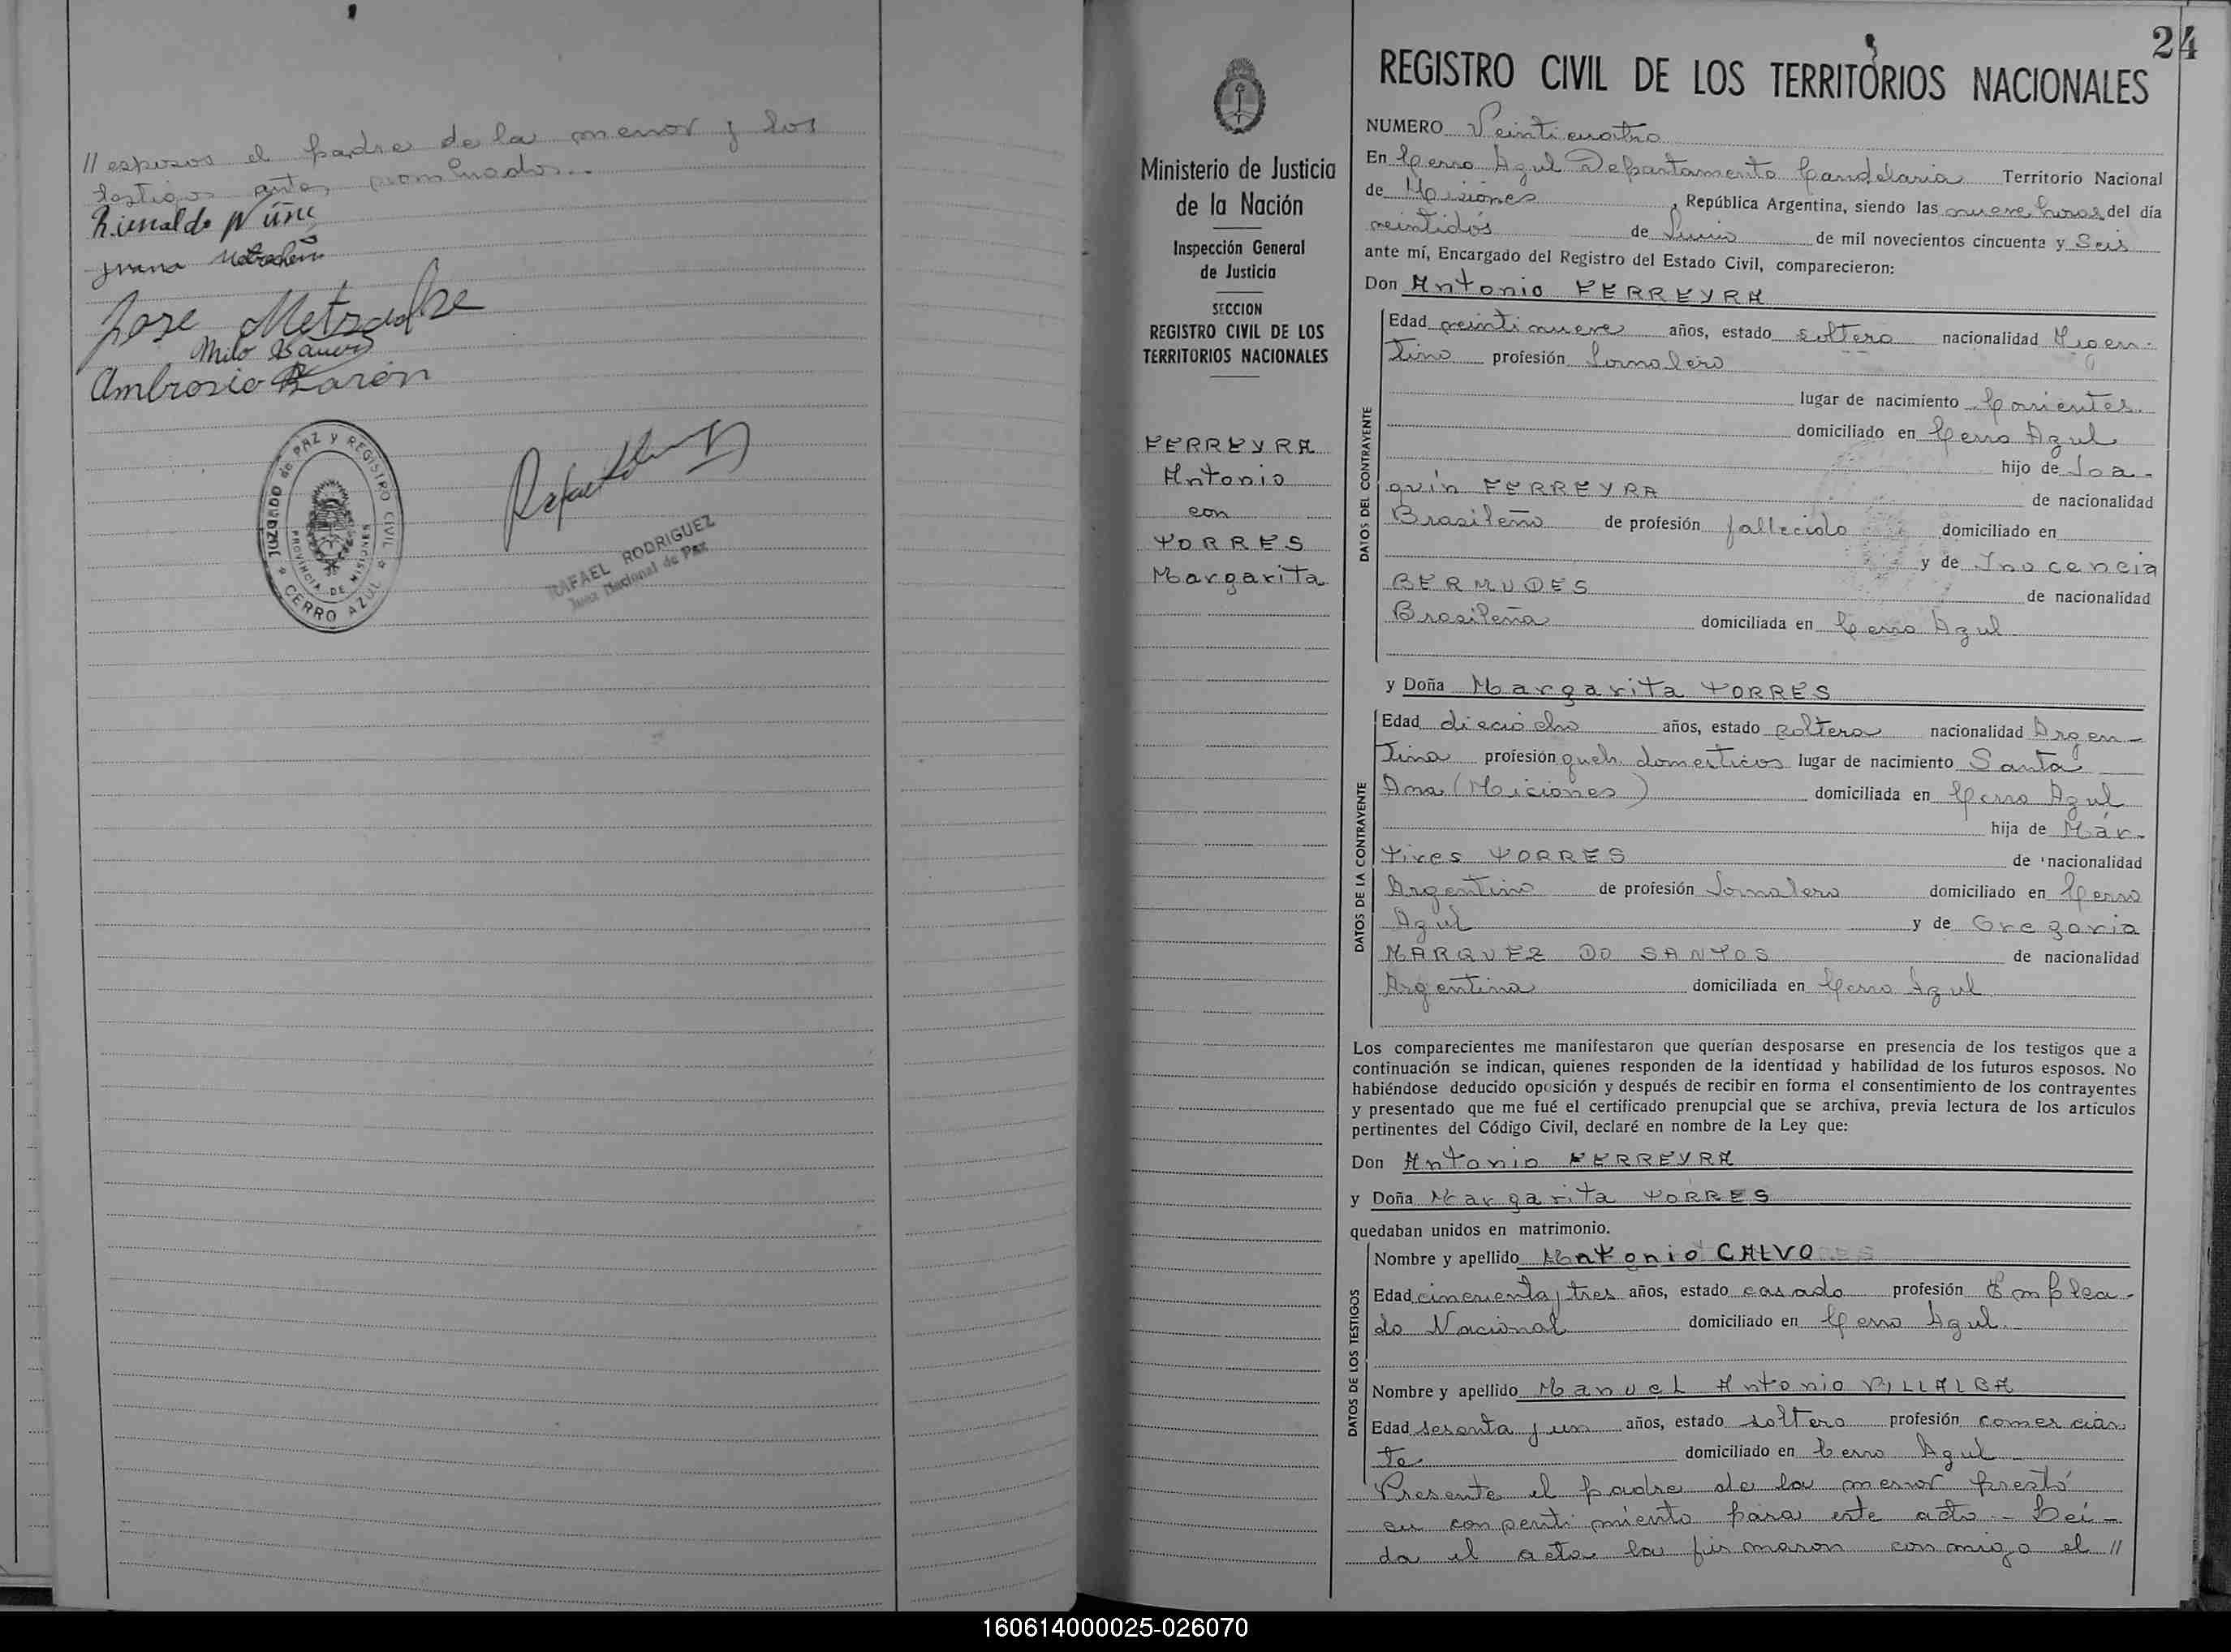 // esposos el padre de la menor y los
testigos antes nombrados.-
Rienaldo Nuñe
Juana
Jose
Milo
Ambrosio Barón
JUZGADO de PAZ y REGISTRO CIVIL
PROVINCIA DE MISIONES
* CERRO AZUL *
RAFAEL RODRIGUEZ
Juez Nacional de Paz
24
Ministerio de Justicia
de la Nación
Inspección General
de Justicia
SECCION
REGISTRO CIVIL DE LOS
TERRITORIOS NACIONALES
FERREYRA
Antonio
con
TORRES
Margarita
REGISTRO CIVIL DE LOS TERRITORIOS NACIONALES
NUMERO Veinticuatro
En Cerro Azul Departamento Candelaria Territorio Nacional
de Misiones, República Argentina, siendo las nueve horas del día
veintidós de Junio de mil novecientos cincuenta y Seis
ante mí, Encargado del Registro del Estado Civil, comparecieron:
Don Antonio FERREYRA
DATOS DEL CONTRAYENTE
Edad veintinueve años, estado soltero nacionalidad Argen-
tino profesión Jornalero
lugar de nacimiento Corrientes.
domiciliado en Cerro Azul
hijo de Joa-
quín FERREYRA de nacionalidad
Brasileño de profesión fallecido domiciliado en
y de Inocencia
BERMUDES de nacionalidad
Brasileña domiciliada en Cerro Azul
y Doña Margarita TORRES
DATOS DE LA CONTRAYENTE
Edad dieciocho años, estado soltera nacionalidad Argen-
tina profesión queh. domesticos lugar de nacimiento Santa
Ana (Miciones) domiciliada en Cerro Azul
hija de Már-
tires TORRES de nacionalidad
Argentino de profesión Jornalero domiciliado en Cerro
Azul y de Gregoria
MARQUEZ DO SANTOS de nacionalidad
Argentina domiciliada en Cerro Azul
Los comparecientes me manifestaron que querían desposarse en presencia de los testigos que a
continuación se indican, quienes responden de la identidad y habilidad de los futuros esposos. No
habiéndose deducido oposición y después de recibir en forma el consentimiento de los contrayentes
y presentado que me fué el certificado prenupcial que se archiva, previa lectura de los artículos
pertinentes del Código Civil, declaré en nombre de la Ley que:
Don Antonio FERREYRA
y Doña Margarita TORRES
quedaban unidos en matrimonio.
DATOS DE LOS TESTIGOS
Nombre y apellido Antonio CALVO
Edad cincuenta y tres años, estado casado profesión Emplea-
do Nacional domiciliado en Cerro Azul.
Nombre y apellido Manuel Antonio VILLALBA
Edad sesenta y un años, estado soltero profesión comercian
te domiciliado en Cerro Azul
Presente el padre de la menor prestó
su consentimiento para este acto.- Leí-
da el acta la firmaron conmigo el //
160614000025-026070